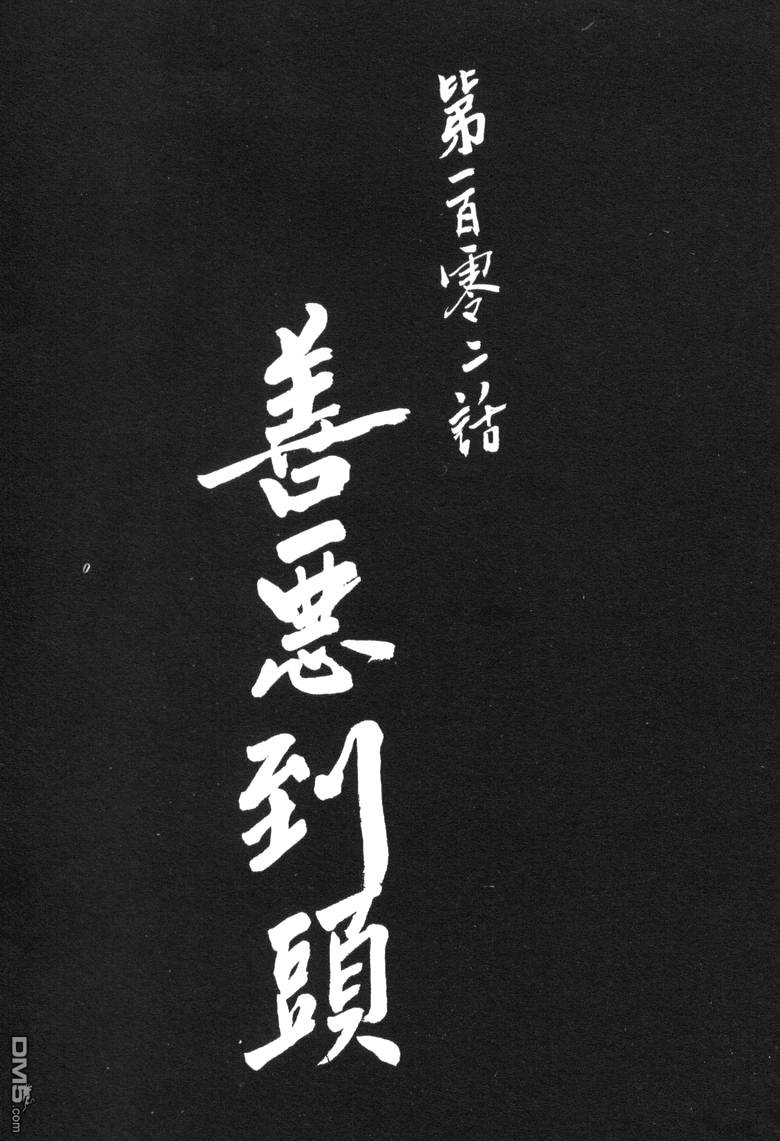 第一百零二話
善惡到頭
DM5.com